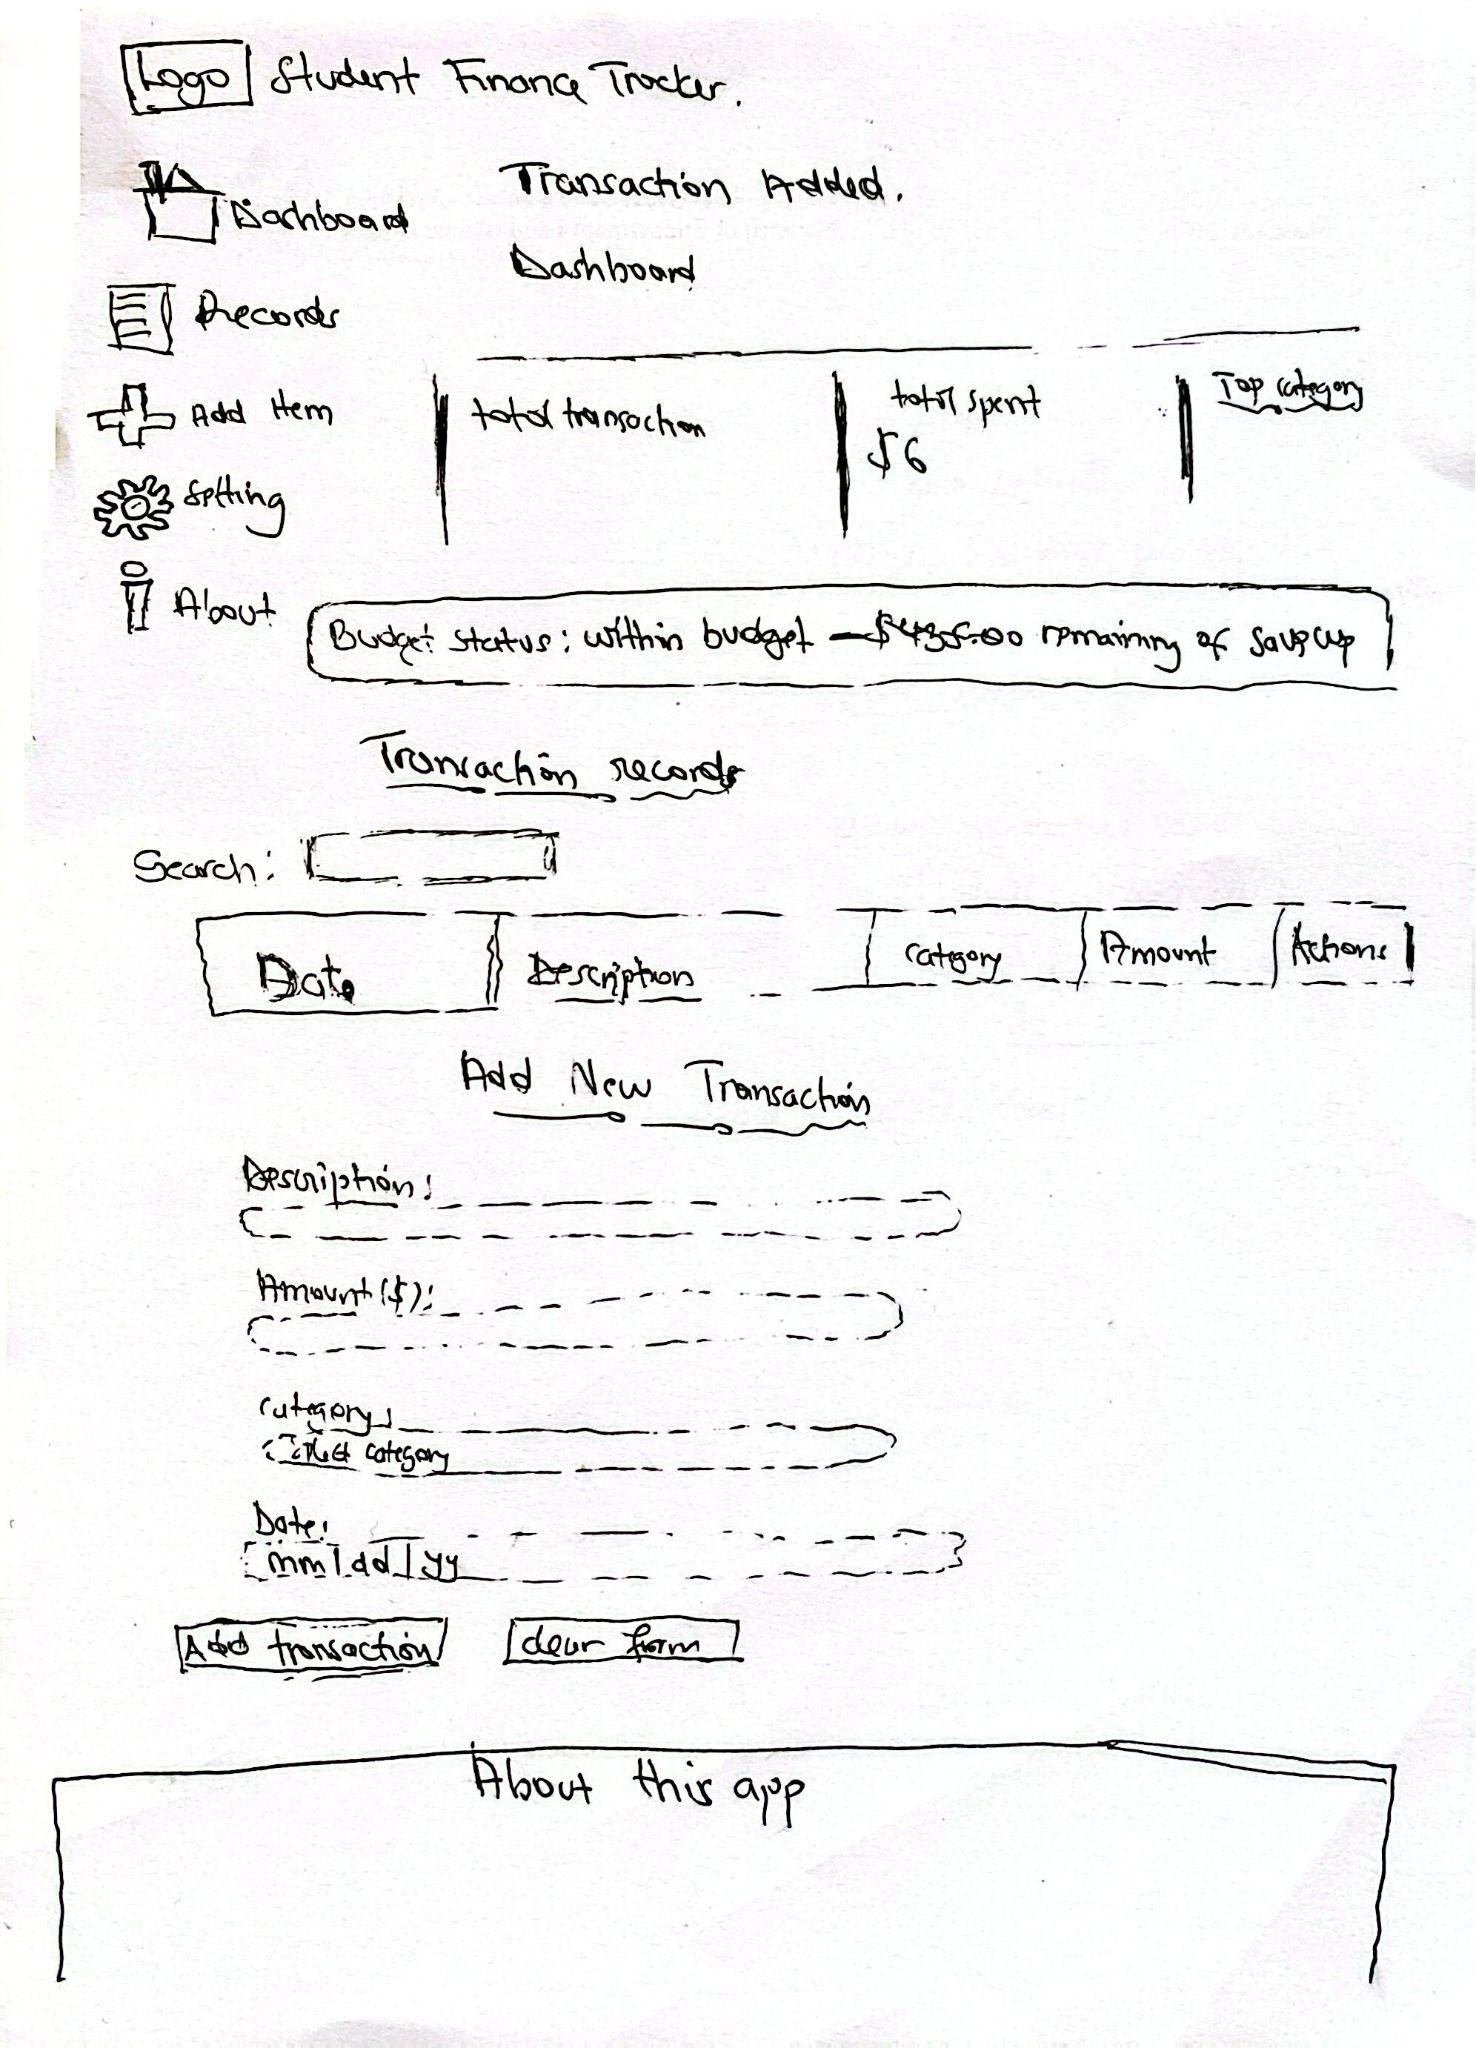 Logo Student Finance Tracker.
Transaction Added.
Dashboard
Dashboard
Records
Add Item
Setting
About
total transaction
total spent
$6
Top category
Budget status: within budget - $435.00 remaining of
Transaction records
Search:
Date Description category Amount Actions
Add New Transaction
Description:
Amount($):
category:
category
Date:
mm|dd|yy
Add transaction clear form
About this app